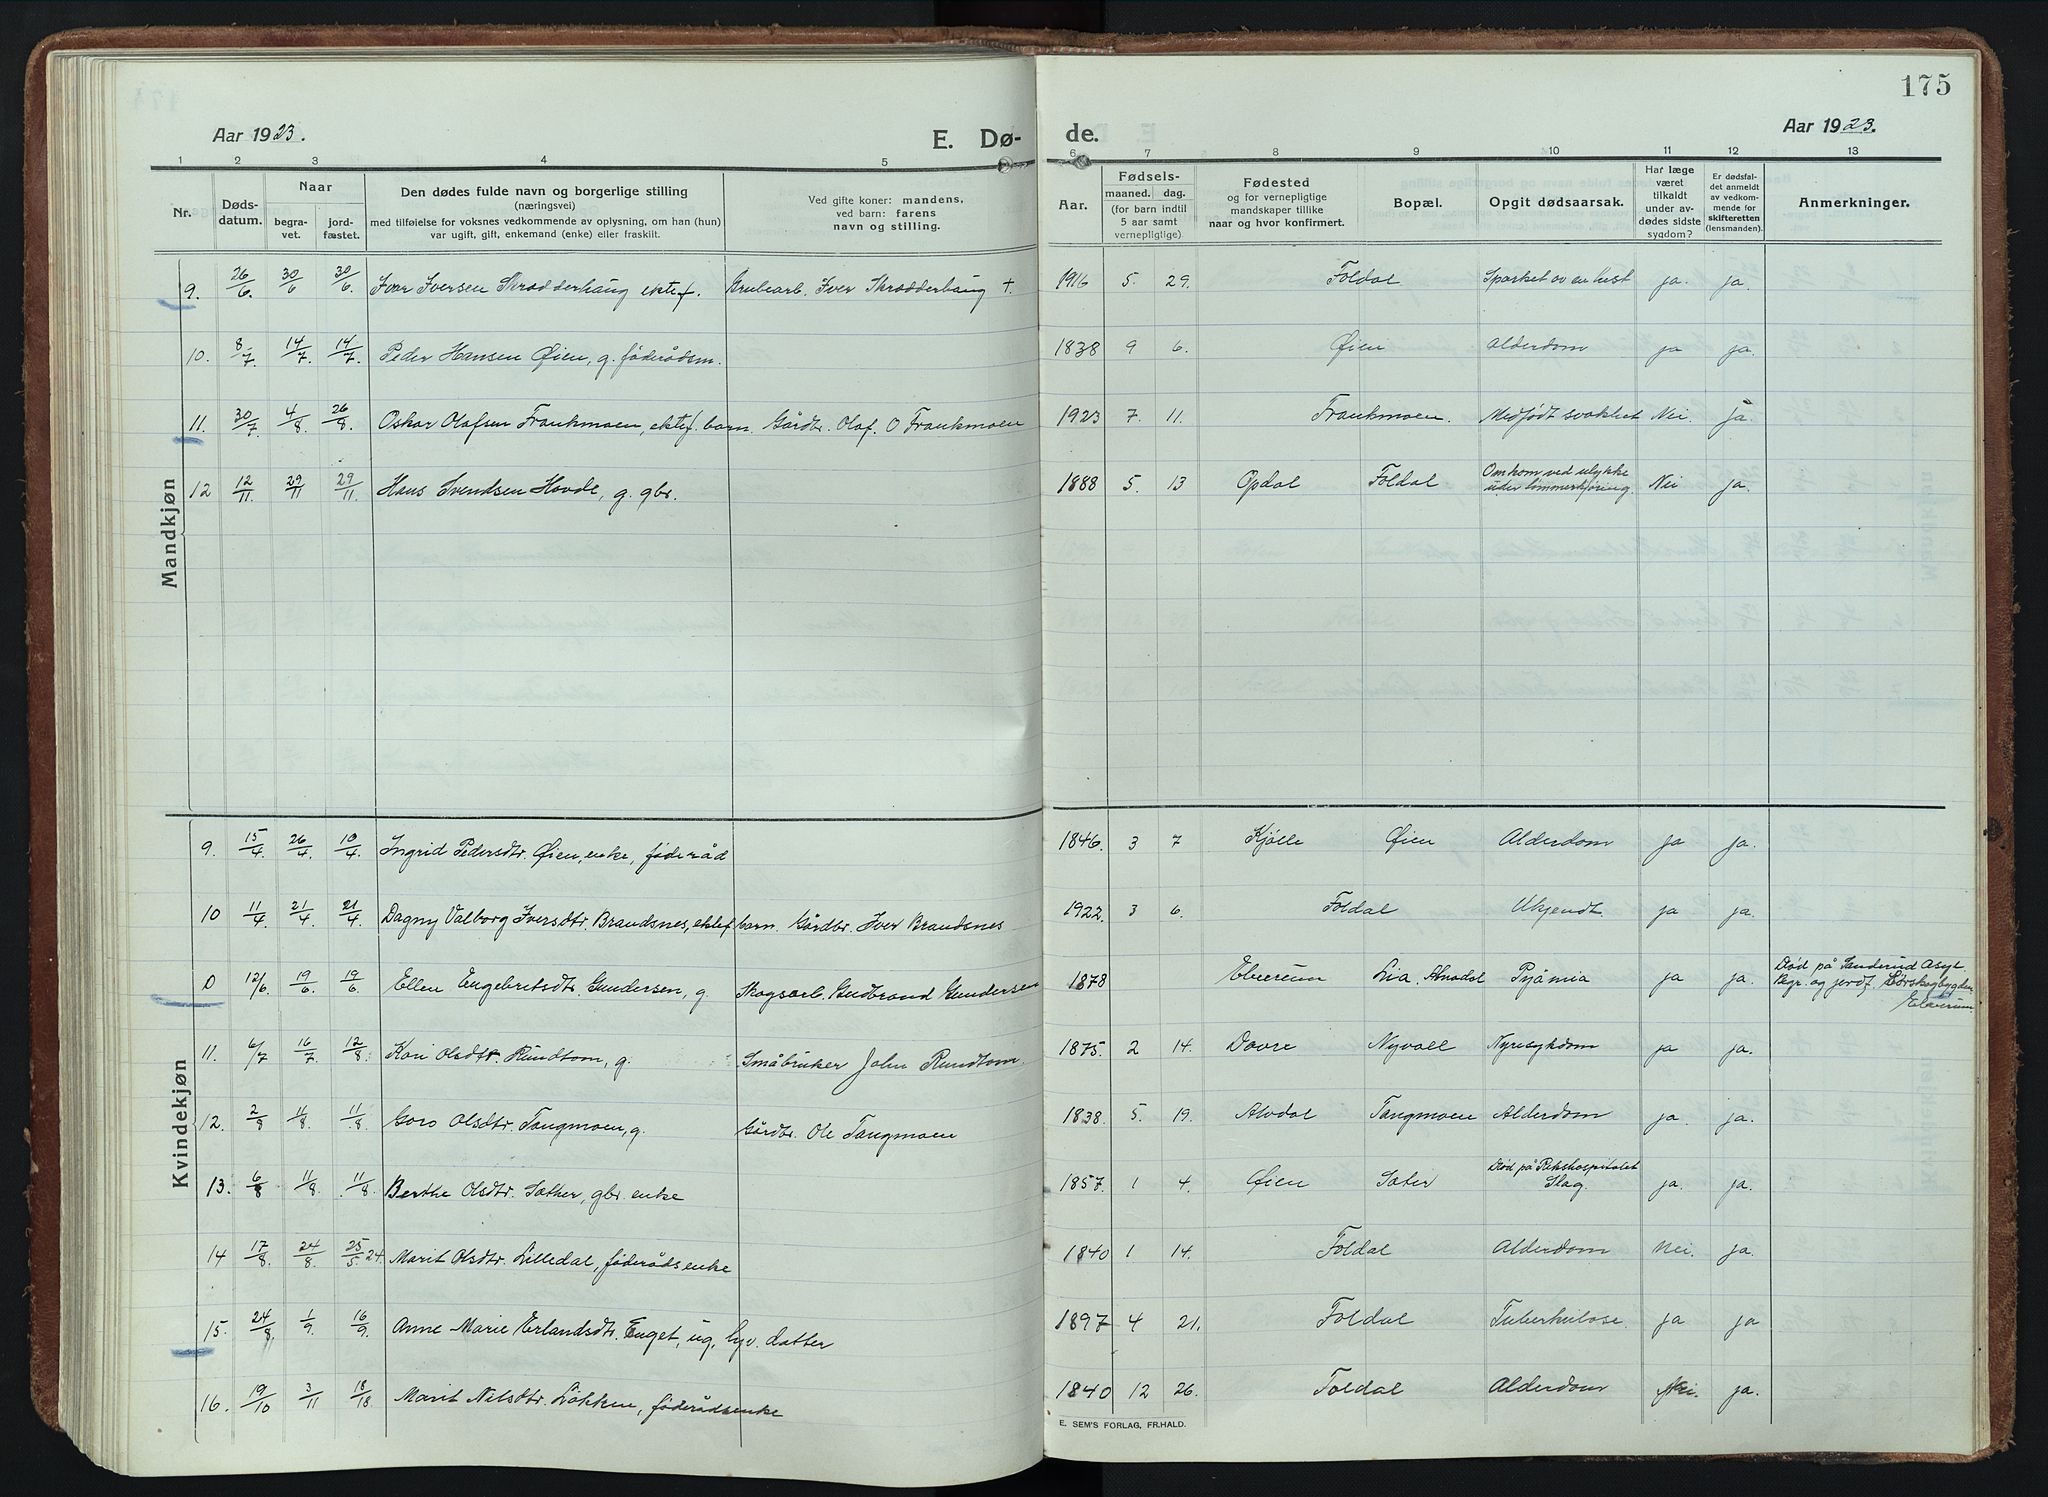 175
Aar 1923.
E. Dø-
de.
Aar 1923.
1 2 3 4 5 6 7 8 9 10 11 12 13
Nr.
Døds-
datum.
Naar
begra-
vet.
jord-
fæstet.
Den dødes fulde navn og borgerlige stilling
(næringsvei)
med tilføielse for voksnes vedkommende av oplysning, om han (hun)
var ugift, gift, enkemand (enke) eller fraskilt.
Ved gifte koner: mandens,
ved barn: farens
navn og stilling.
Aar.
Fødsels-
maaned. dag.
(for barn indtil
5 aar samt
vernepligtige)
Fødested
og for vernepligtige
mandskaper tillike
naar og hvor konfirmert.
Bopæl.
Opgit dødsaarsak.
Har læge
været
tilkaldt
under av-
dødes sidste
sygdom?
Er dødsfal-
det anmeldt
av vedkom-
mende for
skifteretten
(lensmanden).
Anmerkninger.
Mandkjøn
9. 26/6 30/6 30/6 Ivar Iversen Skrædderhaug ektef. Brubearb. Iver Skrædderhaug † 1916 5. 29. Foldal Sparket av en hest ja. ja.
10. 8/7 14/7 14/7 Peder Hansen Øien, g. føderådsm. 1838 9 6. Øien Alderdom ja ja.
11. 30/7 4/8 26/8 Oskar Olafsen Frankmoen, ektef. barn. Gårdbr. Olaf. O Frankmoen 1923 7. 11. Frankmoen. Medfødt svakhet Nei. ja.
12 12/11. 29/11 29/11. Hans Svendsen Hovde, g. gbr. 1888 5. 13 Opdal Foldal Omkom ved ulykke
under tømmerkjøring. Nei ja.
Kvindekjøn
9. 15/4 26/4. 10/4. Ingrid Pedersdtr. Øien, enke, føderåd 1846. 3 7 Kjølle Øien Alderdom ja ja.
10 11/4 21/4. 21/4 Dagny Valborg Iversdtr. Brandsnes, ektef barn. Gårdbr. Iver Brandsnes 1922. 3 6. Foldal Ukjendt ja ja.
0 12/6. 19/6. 19/6. Ellen Engebritsdtr. Gundersen, g. Skogsarb. Gudbrand Gundersen 1878 Elverum Lia, Alvdal Pyämia ja ja. Død på Sanderud Asyl.
Begr. og jordf. Sørskogbygden
Elverum
11. 6/7 16/7. 12/8. Kari Olsdtr. Rundtom, g. Småbruker John Rundtom. 1875. 2 14. Dovre Nyvoll Nyresykdom ja ja.
12. 2/8 11/8. 11/8. Goro Olsdtr. Tangmoen, g. Gårdbr. Ole Tangmoen 1838. 5. 19. Alvdal Tangmoen Alderdom ja. ja.
13. 6/8 11/8 11/8. Berthe Olsdtr. Sæther, gbr. enke 1857. 1 4. Øien Sæter Død på Rikshospitalet
Slag. ja. ja.
14 17/8. 24/8. 25/5. 24. Marit Olsdtr. Lilledal, føderådsenke 1840 1 14. Foldal Alderdom Nei. ja.
15. 24/8 1/9. 16/9. Anne Marie Erlandsdtr. Enget, ug, hjv. datter 1897 4 21. Foldal Tuberkulose. ja ja
16. 19/10 3/11 18/18 Marit Nilsdtr. Løkken, føderådsenke 1840 12 26. Foldal Alderdom Nei. ja.
E. SEM'S FORLAG, FR.HALD.